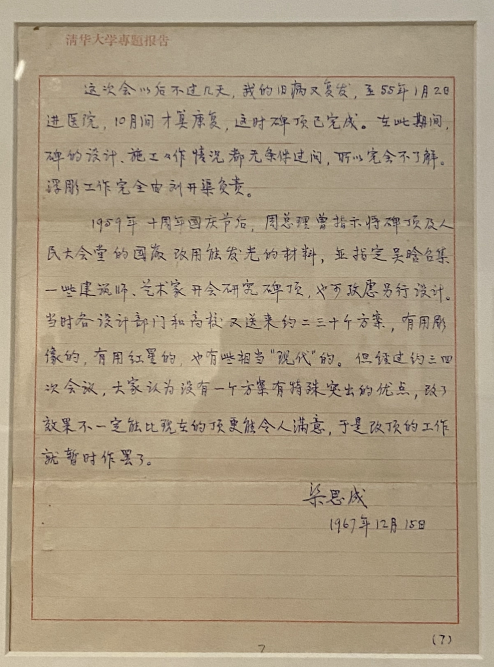 清华大学專題报告
这次会以后不过几天，我的旧病又复发，至55年1月2日
进医院，10月间才算康复，这时碑顶已完成。在此期间，
碑的设计、施工工作情况都无条件过问，所以完全不了解。
浮彫工作完全由刘开渠负责。
1959年十周年国庆节后，周总理曾指示将碑顶及人
民大会堂的国徽改用能发光的材料，並指定吴晗召集
一些建筑师、艺术家开会研究碑顶，也可考虑另行设计。
当时各设计部门和高校又送来约二三十个方案，有用彫
像的，有用红星的，也有些相当“现代”的。但经过约三四
次会议，大家认为没有一个方案有特殊突出的优点，改了
效果不一定能比现在的顶更能令人满意，于是改顶的工作
就暂时作罢了。
梁思成
1967年12月15日
(7)
7